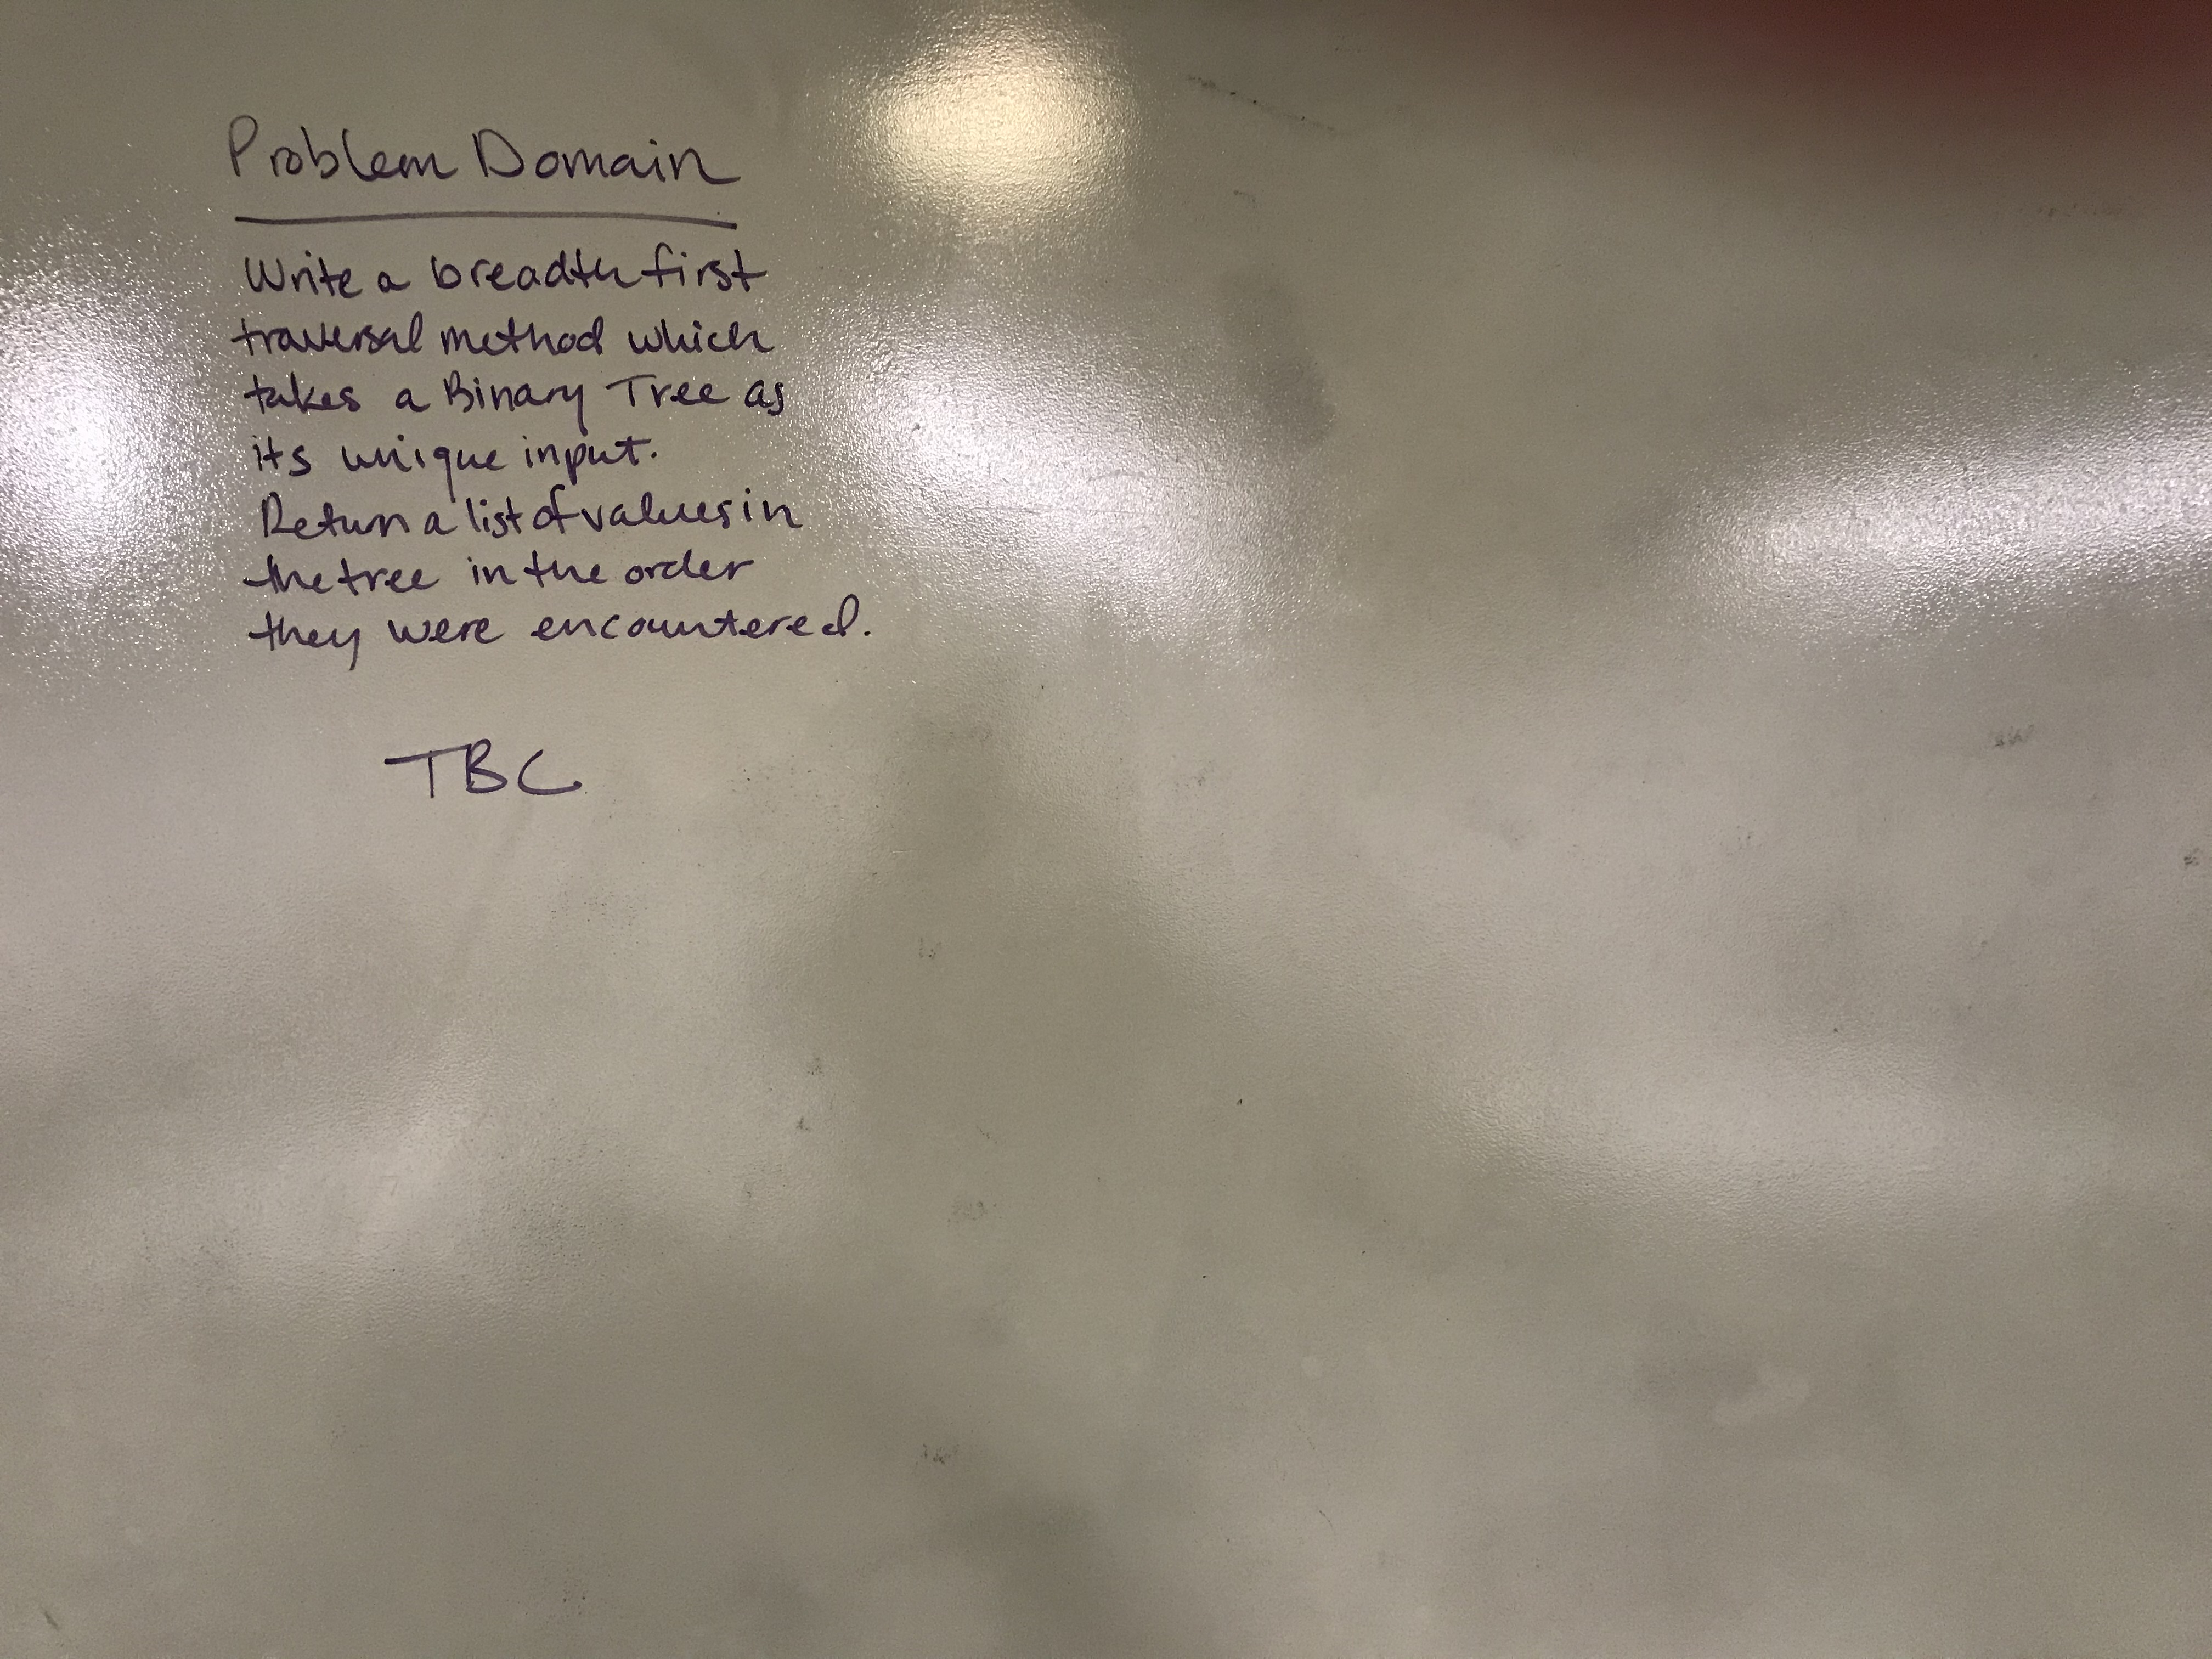 Problem Domain
Write a breadth first
traversal method which
takes a Binary Tree as
its unique input.
Return a list of values in
the tree in the order
they were encountered.
TBC